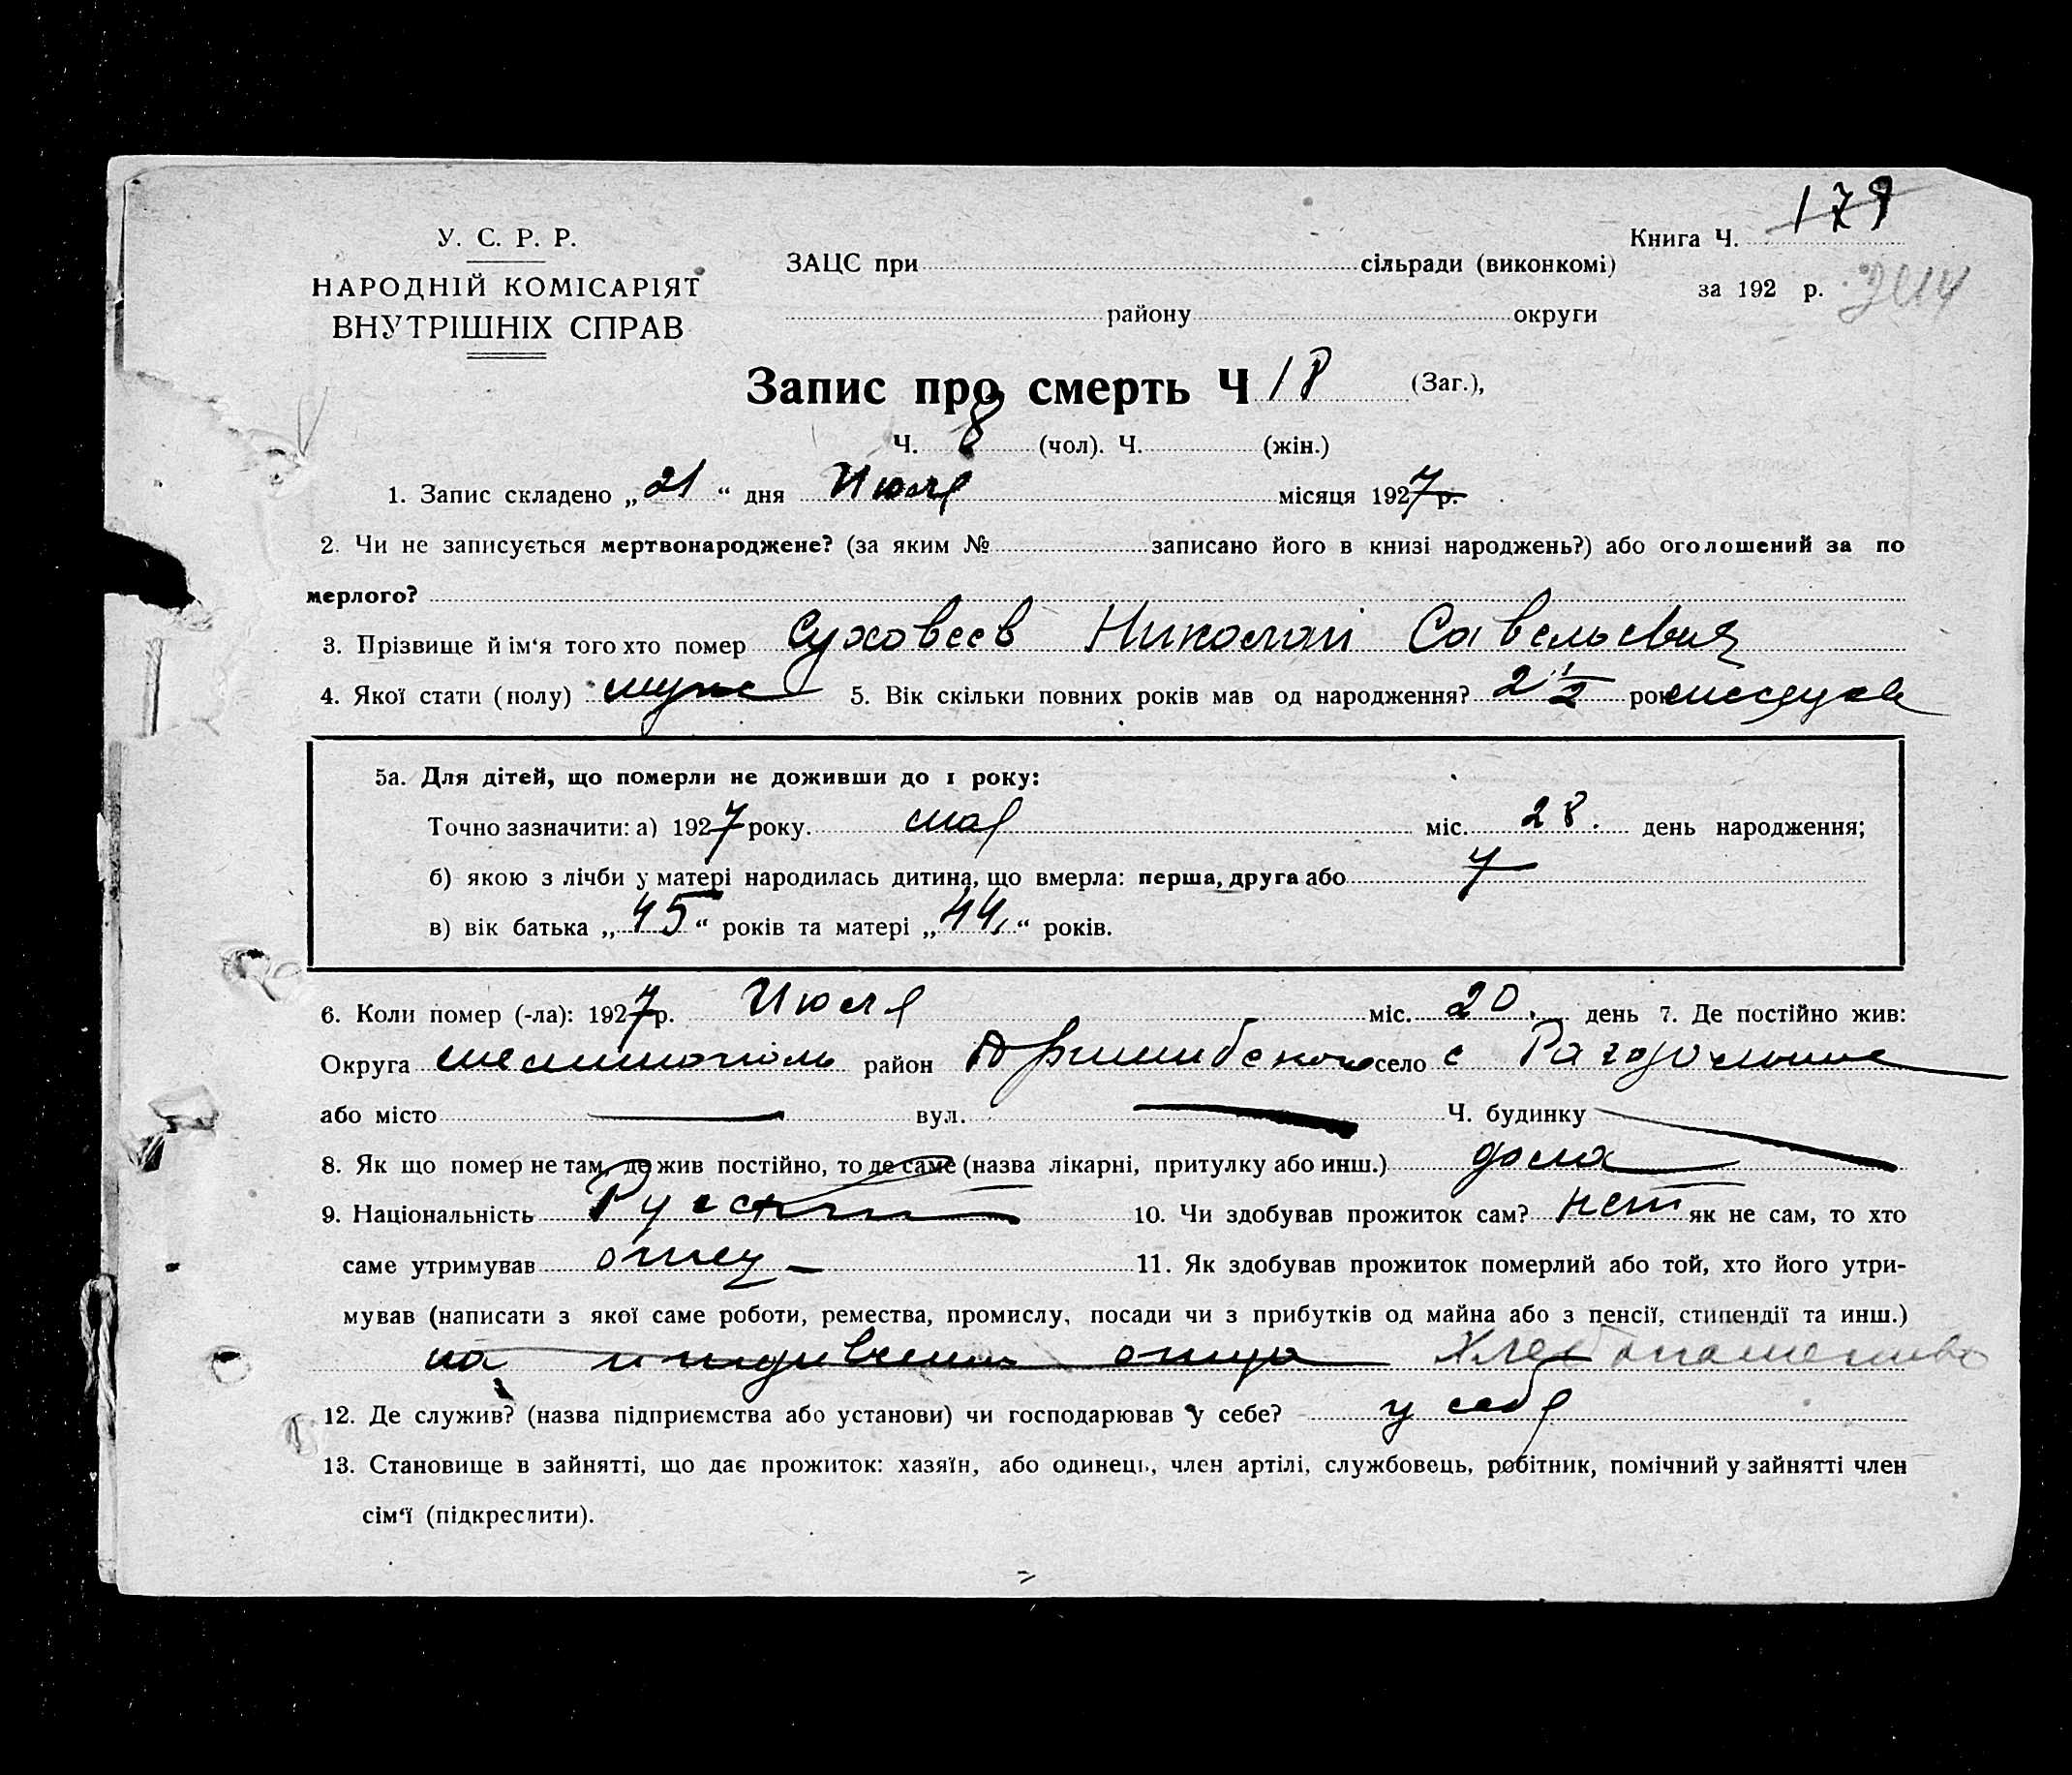 У. С. Р. Р.
НАРОДНІЙ КОМІСАРІЯТ
ВНУТРІШНІХ СПРАВ
ЗАЦС при сільради (виконкомі)
району округи
Книга Ч. 179
за 192 р.
Запис про смерть Ч 18 (Заг.),
Ч. 8 (чол). Ч. (жін.)
1. Запис складено „21“ дня Июля місяця 1927 р.
2. Чи не записується мертвонароджене? (за яким № записано його в книзі народжень?) або оголошений за по
мерлого?
3. Прізвище й ім‘я того хто помер Суховеев Николай Савельевич
4. Якої стати (полу) муж 5. Вік скільки повних років мав од народження? 2 1/2 рок месяца
5а. Для дітей, що померли не доживши до 1 року:
Точно зазначити: а) 1927 року. мая міс. 28. день народження;
б) якою з лічби у матері народилась дитина, що вмерла: перша, друга або 7
в) вік батька „45“ років та матері „44“ років.
6. Коли помер (-ла): 1927 р. Июля міс. 20. день 7. Де постійно жив:
Округа район село с
або місто вул. Ч. будинку
8. Як що помер не там, де жив постійно, то де саме (назва лікарні, притулку або инш.) дома
9. Національність Русский 10. Чи здобував прожиток сам? нет як не сам, то хто
саме утримував отец 11. Як здобував прожиток померлий або той, хто його утри-
мував (написати з якої саме роботи, ремества, промислу, посади чи з прибутків од майна або з пенсії, стипендії та инш.)
на иждивении отца Хлебопашество
12. Де служив? (назва підприємства або установи) чи господарював у себе? у себя
13. Становище в зайнятті, що дає прожиток: хазяїн, або одинець, член артілі, службовець, робітник, помічний у зайнятті член
сім‘ї (підкреслити).